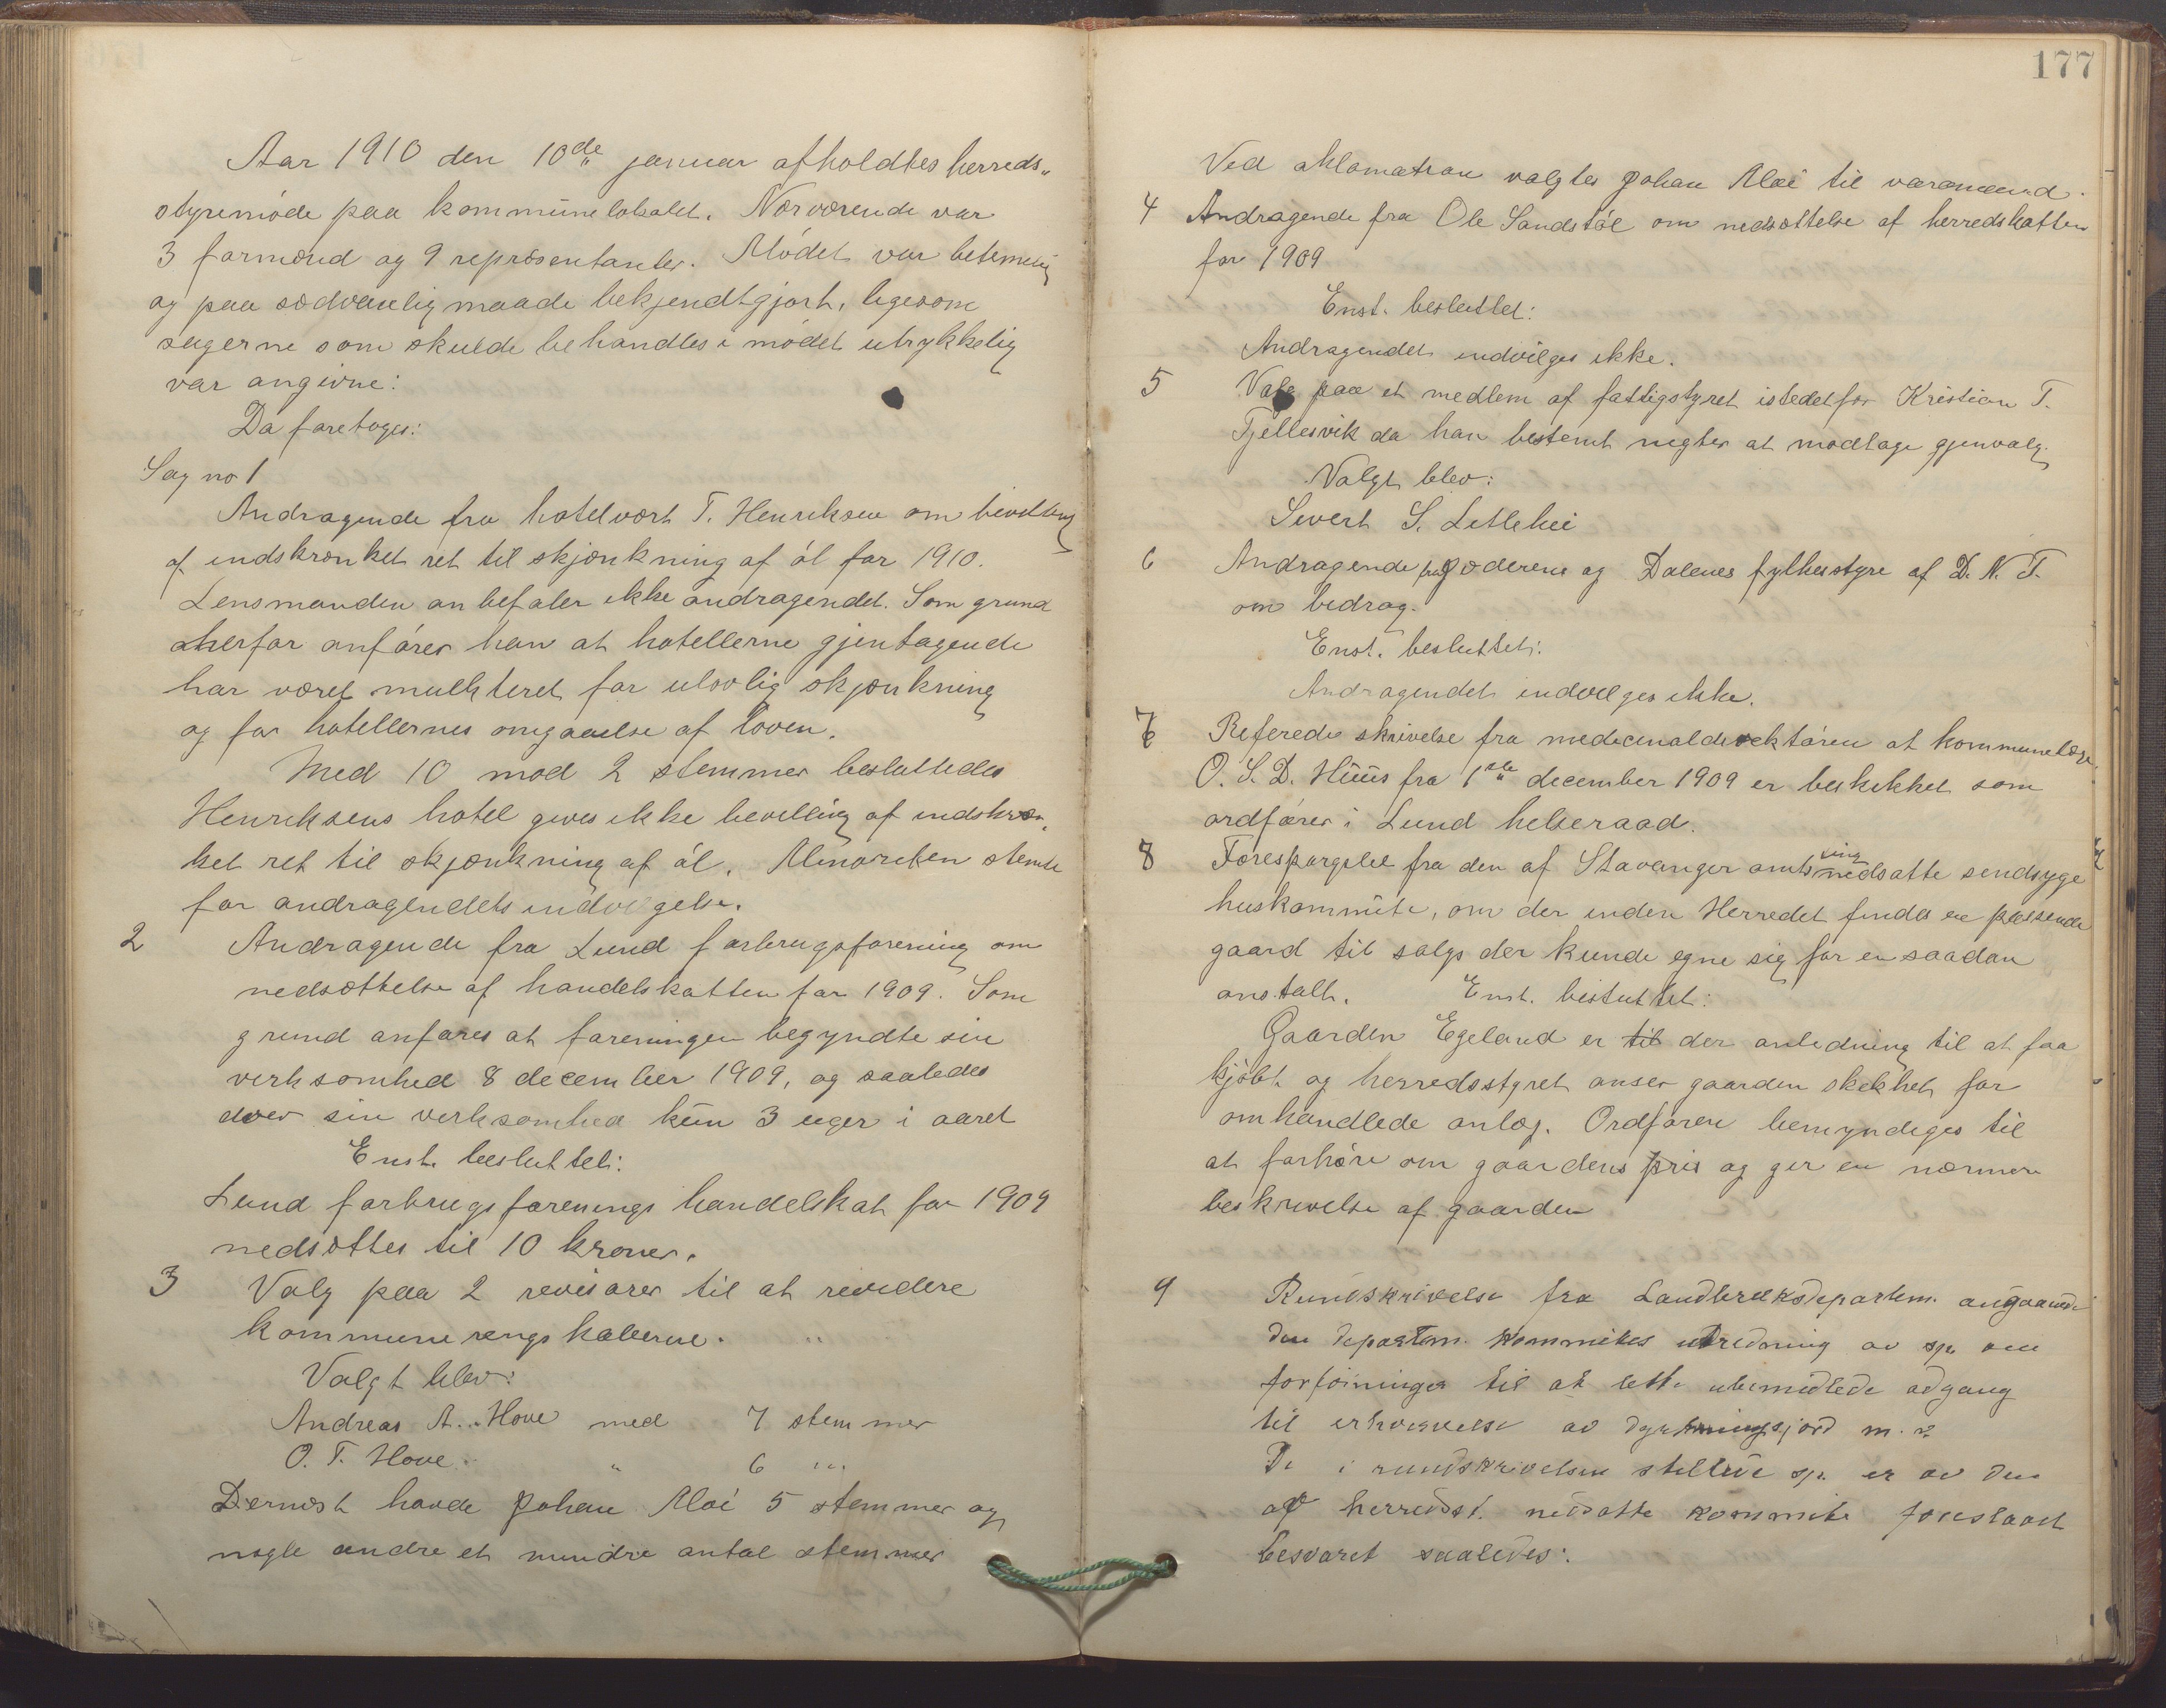 Aar 1910 den 10de januar afholdtes herreds„
styremöde paa kommunelokalet. Nærværende var
3 formænd og 9 repræsentanter. Mödet var betimelig
og paa sædvanlig maade bekjendtgjort, ligesom
sagerne som skulde behandles i mödet utrykkelig
var angivne:
Da foretoges:
Sag no 1
Andragende fra hotelvært T. Henriksen om bevilling
af indskrænket ret til skjænkning af öl for 1910.
Lensmanden anbefaler ikke andragendet. Som grund
herfor anförer han at hotellerne gjentagende
har været mulkteret for ulovlig skjænkning
og for hotellernes omgaaelse af loven.
Med 10 mod 2 stemmer besluttedes
Henriksens hotel gives ikke bevilling af indskræn„
ket ret til skjænkning af öl. Minoriteten stemte
for andragendets indvilgelse.
2 Andragende fra Lund forbrugsforening om
nedsættelse af handelskatten for 1909. Som
grund anföres at foreningen begyndte sin
verksomhed 8 december 1909, og saaledes
drev sin verksomhed kün 3 uger i aaret
Enst. besluttet:
Lund forbrugsforenings handelskat for 1909
nedsættes til 10 kroner.
3 Valg paa 2 revisorer til at revidere
kommuneregnskaberne.
Valgt blev:
Andreas A. Hove med 7 stemmer
O. T. Hove „ 6 „
Dernæst havde Johan Moi 5 stemmer og
nogle andre et mindre antal stemmer
177
Ved aklamation valgtes Johan Moi til varamænd.
4 Andragende fra Ole Sandstöl om nedsættelse af herredskatten
for 1909
Enst. besluttet:
Andragendet indvilges ikke.
5 Valg paa et medlem af fattigstyret istedetfor Kristian T.
Tjellesvik da han bestemt negter at modtage gjenvalg.
Valgt blev:
Sivert S. Litlehei
6 Andragende fra Jæderens og Dalenes fylkesstyre af D. N. T.
om bidrag.
Enst. besluttet:
Andragendet indvilges ikke.
7 Referedes skrivelse fra medicinaldirektören at kommunelæge
O. S. D. Hüüs fra 1ste december 1909 er beskikket som
ordförer i Lund helseraad.
8 Forespörgsel fra den af Stavanger amtsting nedsatte sindsyge
huskommite, om der inden Herredet findes en passende
gaard til salgs der kunde egne sig for en saadan
anstalt. Enst. besluttet:
Gaarden Egeland er til der anledning til at faa
kjöbt og herredsstyret anser gaarden skikket for
omhandlede anlæg. Ordfören bemyndiges til
at forhöre om gaardens pris og gir en nærmere
beskrivelse af gaarden
9 Rundskrivelse fra Landbruksdepartem. angaaende
den departem. kommites utredning av sp. om
forföininger til at lette ubemidlede adgang
til erhvervelse av dyrkningsjord m. v.
De i rundskrivelsen stillede sp. er av den
af herredst. nedsatte kommite foreslaat
besvaret saaledes: